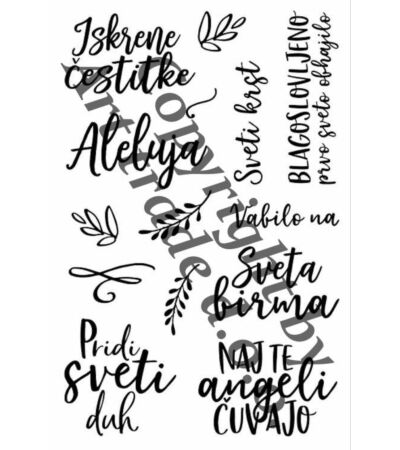 Iskrene
čestitke
Aleluja
Sveti krst
BLAGOSLOVLJENO
prvo sveto obhajilo
Vabilo na
Sveta
birma
Pridi
sveti
duh
NAJ TE
angeli
ČUVAJO
Copyright by
Art trade d.o.o.